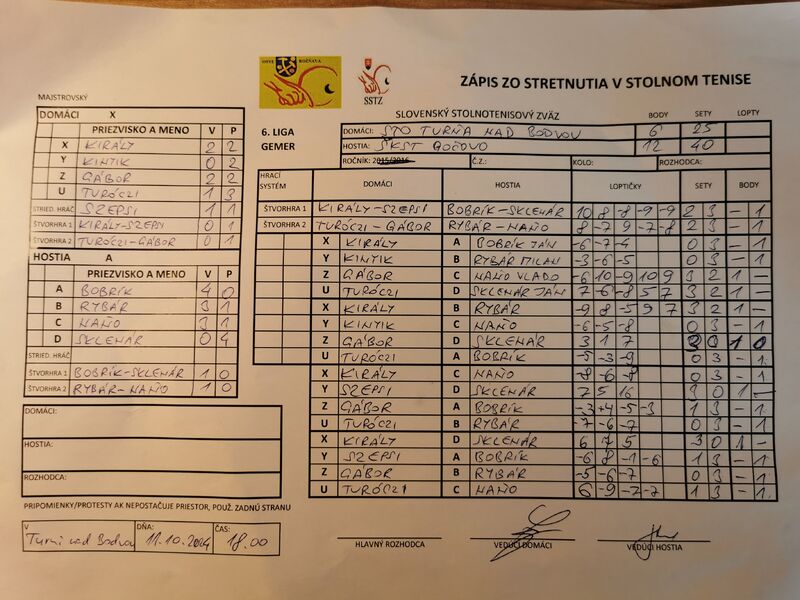 OSTZ ROŽŇAVA
SSTZ
ZÁPIS ZO STRETNUTIA V STOLNOM TENISE
MAJSTROVSKÝ
DOMÁCI X
PRIEZVISKO A MENO V P
X KIRÁLY 2 2
Y KINTIK 0 2
Z GÁBOR 2 2
U TURÓCZI 1 3
STRIED. HRÁČ SZEPSI 1 1
ŠTVORHRA 1 KIRÁLY-SZEPSI 0 1
ŠTVORHRA 2 TURÓCZI-GÁBOR 0 1
HOSTIA A
PRIEZVISKO A MENO V P
A BOBRÍK 4 0
B RYBÁR 3 1
C NAŇO 3 1
D SKLENÁR 0 4
STRIED. HRÁČ
ŠTVORHRA 1 BOBRÍK-SKLENÁR 1 0
ŠTVORHRA 2 RYBÁR-NAŇO 1 0
DOMÁCI:
HOSTIA:
ROZHODCA:
PRIPOMIENKY/PROTESTY AK NEPOSTAČUJE PRIESTOR, POUŽ. ZADNÚ STRANU
V DŇA: ČAS:
Turni nad Bodvou 11.10.2024 18.00
SLOVENSKÝ STOLNOTENISOVÝ ZVÄZ BODY SETY LOPTY
6. LIGA DOMÁCI: STO TURŇA NAD BODVOU 6 25
GEMER HOSTIA: ŠKST BOČOVO 12 40
ROČNÍK: 2015/2016 Č.Z.: KOLO: ROZHODCA:
HRACÍ SYSTÉM DOMÁCI HOSTIA LOPTIČKY SETY BODY
ŠTVORHRA 1 KIRÁLY-SZEPSI BOBRÍK-SKLENÁR 10 8 -8 -9 -9 2 3 - 1
ŠTVORHRA 2 TURÓCZI-GÁBOR RYBÁR-NAŇO 8 -7 9 -7 -8 2 3 - 1
X KIRÁLY A BOBRÍK JÁN -6 -7 -4 0 3 - 1
Y KINTIK B RYBÁR MILAN -3 -6 -5 0 3 - 1
Z GÁBOR C NAŇO VLADO -6 10 -9 10 9 3 2 1 -
U TURÓCZI D SKLENÁR JÁN 7 -6 -8 5 7 3 2 1 -
X KIRÁLY B RYBÁR -9 8 -5 9 7 3 2 1 -
Y KINTIK C NAŇO -6 -5 -8 0 3 - 1
Z GÁBOR D SKLENÁR 3 1 7 3 0 1 0
U TURÓCZI A BOBRÍK -5 -3 -9 0 3 - 1
X KIRÁLY C NAŇO -8 -6 -8 0 3 - 1
Y SZEPSI D SKLENÁR 7 5 16 3 0 1 -
Z GÁBOR A BOBRÍK -3 +4 -5 -3 1 3 - 1
U TURÓCZI B RYBÁR -7 -6 -7 0 3 - 1
X KIRÁLY D SKLENÁR 6 7 5 3 0 1 -
Y SZEPSI A BOBRÍK -6 8 -1 -6 1 3 - 1
Z GÁBOR B RYBÁR -5 -6 -7 0 3 - 1
U TURÓCZI C NAŇO 6 -9 -7 -7 1 3 - 1
HLAVNÝ ROZHODCA VEDÚCI DOMÁCI VEDÚCI HOSTIA